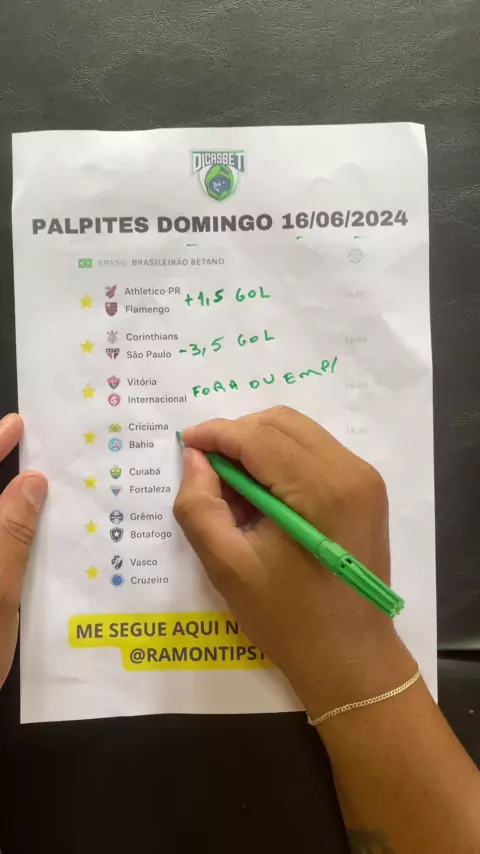 DICASBET
PALPITES DOMINGO 16/06/2024
BRASIL: BRASILEIRÃO BETANO
Athletico-PR
Flamengo
+1,5 GOL
Corinthians
São Paulo
-3,5 GOL
Vitória
Internacional
FORA OU EMP/
Criciúma
Bahia
Cuiabá
Fortaleza
Grêmio
Botafogo
Vasco
Cruzeiro
ME SEGUE AQUI
@RAMONTIPS